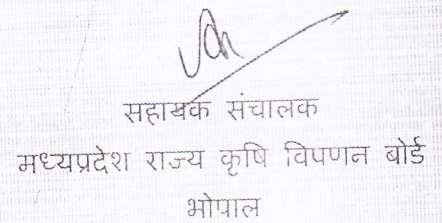 सहायक संचालक
मध्यप्रदेश राज्य कृषि विपणन बोर्ड
भोपाल